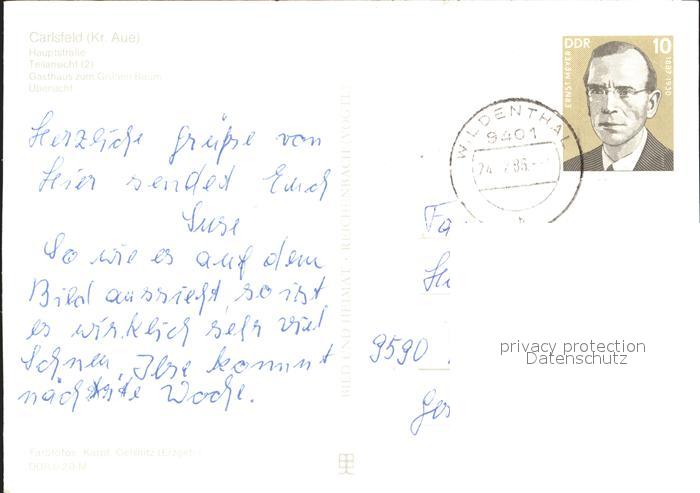 Carlsfeld (Kr. Aue)
Hauptstraße
Teilansicht (2)
Gasthaus zum Grünen Baum
Übersicht
Herzliche Grüße von
hier sendet Euch
Suse
So wie es auf dem
Bild aussieht, so ist
es wirklich sehr viel
Schnee. Ilse kommt
nächste Woche.
Farbfotos: Kümpf.
DDR 0.20 M
BILD UND HEIMAT · REICHENBACH (VOGTL)
WILDENTHAL
9401
DDR 10
ERNST MEYER
1887-1930
Fa
9590
privacy protection
Datenschutz